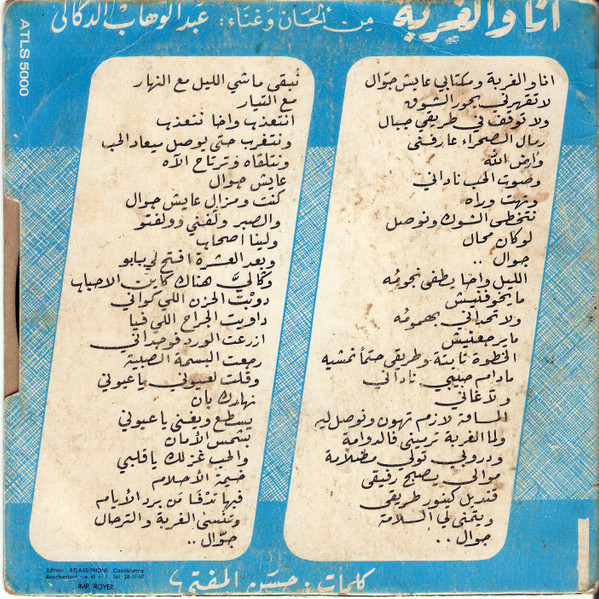 انا والغربة
من ألحان وغناء : عبد الوهاب الدكالي
ATLS 5000
انا والغربة ومكتابي عايش جوّال
لا تقهرني بحور الشوق
ولا توقف في طريقي جبال
رمال الصحراء عارفني
وأرض الله
وصوت الحب ناداني
وتهت وراه
نتخطى الشوك ونوصل
لوكان محال
جوال ..
الليل واخا يطفى نجومُه
ما يخوفنيش
ولا تحداني بهمومُه
ما يرجعنيش
الخطوة ثابتة وطريقي حتماً نمشيه
مادام حبيبي ناداني
ولاغاني
المسافة لازم تهون ونوصل ليه
ولما الغربة ترميني فالدوامة
ودروبي تولي مظلامة
موالي يصبح رفيقي
قنديل كينور طريقي
ويتمنى لي السلامة
جوال ..
نبقى ماشي الليل مع النهار
مع التيار
انتعذب واخا نتعذب
ونتغرب حتى يوصل ميعاد الحب
ونتلقاه وترتاح الآه
عايش جوال
كنت ومزال عايش جوال
والصبر ولفني وولفتو
ولينا أصحاب
وبعد العشرة افتح لي بابو
وگالي هناك كاين الاحباب
دوبت الحزن اللي كواني
داويت الجراح اللي فيا
ازرعت الورد فوجداني
رجعت البسمة الصبية
وقلت لعيوني يا عيوني
نهارك بان
يسطع ويغني يا عيوني
بشمس الأمان
والحب غزلك يا قلبي
خيمة الأحلام
فيها تدفا من برد الأيام
وتنسى الغربة والترحال
جوّال ..
كلمات : حسن المفتي
Editeur ATLASSIPHONE Casablanca
IMP. ROYER